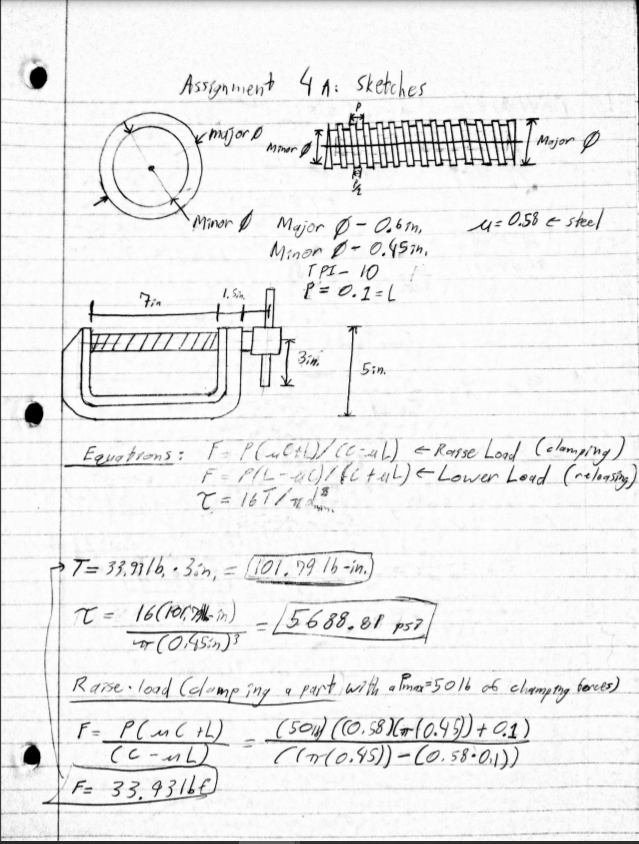 Assignment 4A: Sketches
P
major Ø
Minor Ø
Major Ø
P/2
Minor Ø
Major Ø - 0.6in.
μ = 0.58 ← steel
Minor Ø - 0.45in.
TPI - 10
P = 0.1 = L
7in
1.5in.
3in.
5in.
Equations: F = P(μC+L)/(C-μL) ← Raise Load (clamping)
F = P(L-μC)/(C+μL) ← Lower Load (releasing)
τ = 16T/πd³min.
T = 33.93lb. · 3in. = 101.79 lb-in.
τ = 16(101.79lb-in) / π(0.45in)³ = 5688.81 psi
Raise-load (clamping a part) with a Pmax=50lb of clamping forces)
F = P(μC+L) / (C-μL) = (50lb)((0.58)(π(0.45))+0.1) / ((π(0.45))-(0.58·0.1))
F = 33.93lbf